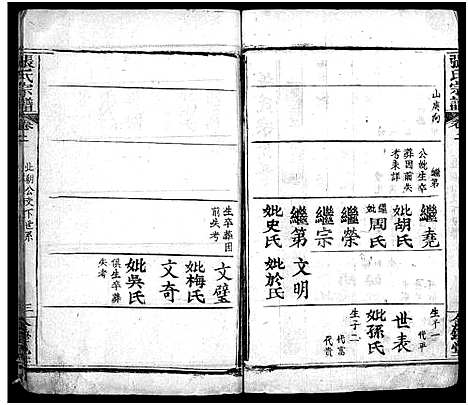 張氏宗譜
山庚向
繼第
公妣生卒
葬因前失
考未詳
繼堯
妣胡氏
繼妣周氏
繼榮
繼宗
繼第
妣史氏
生子一
代平
世表
妣孫氏
生子二
代富
代貴
文明
妣於氏
生卒葬因
前失考
文璧
妣梅氏
文奇
妣吳氏
俱生卒葬
失考
張氏宗譜
卷
公文下世系
三